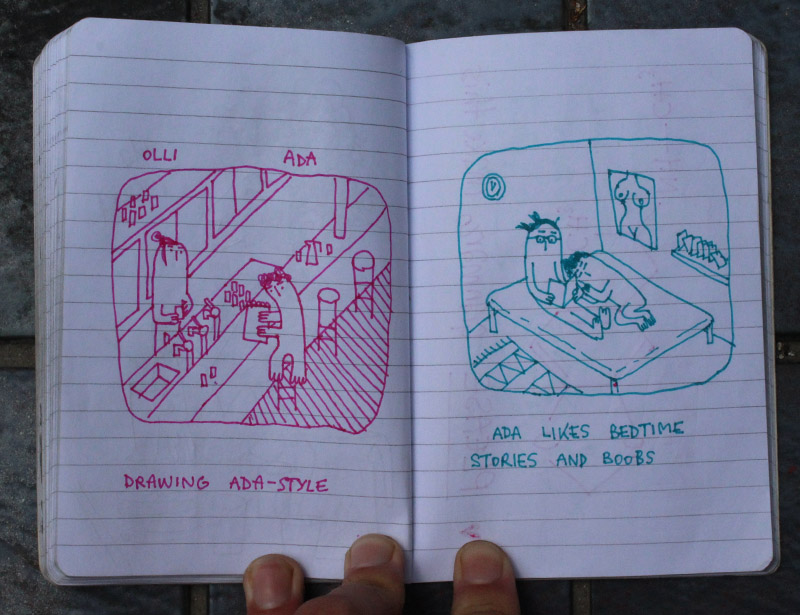 OLLI ADA
DRAWING ADA-STYLE
ADA LIKES BEDTIME
STORIES AND BOOBS